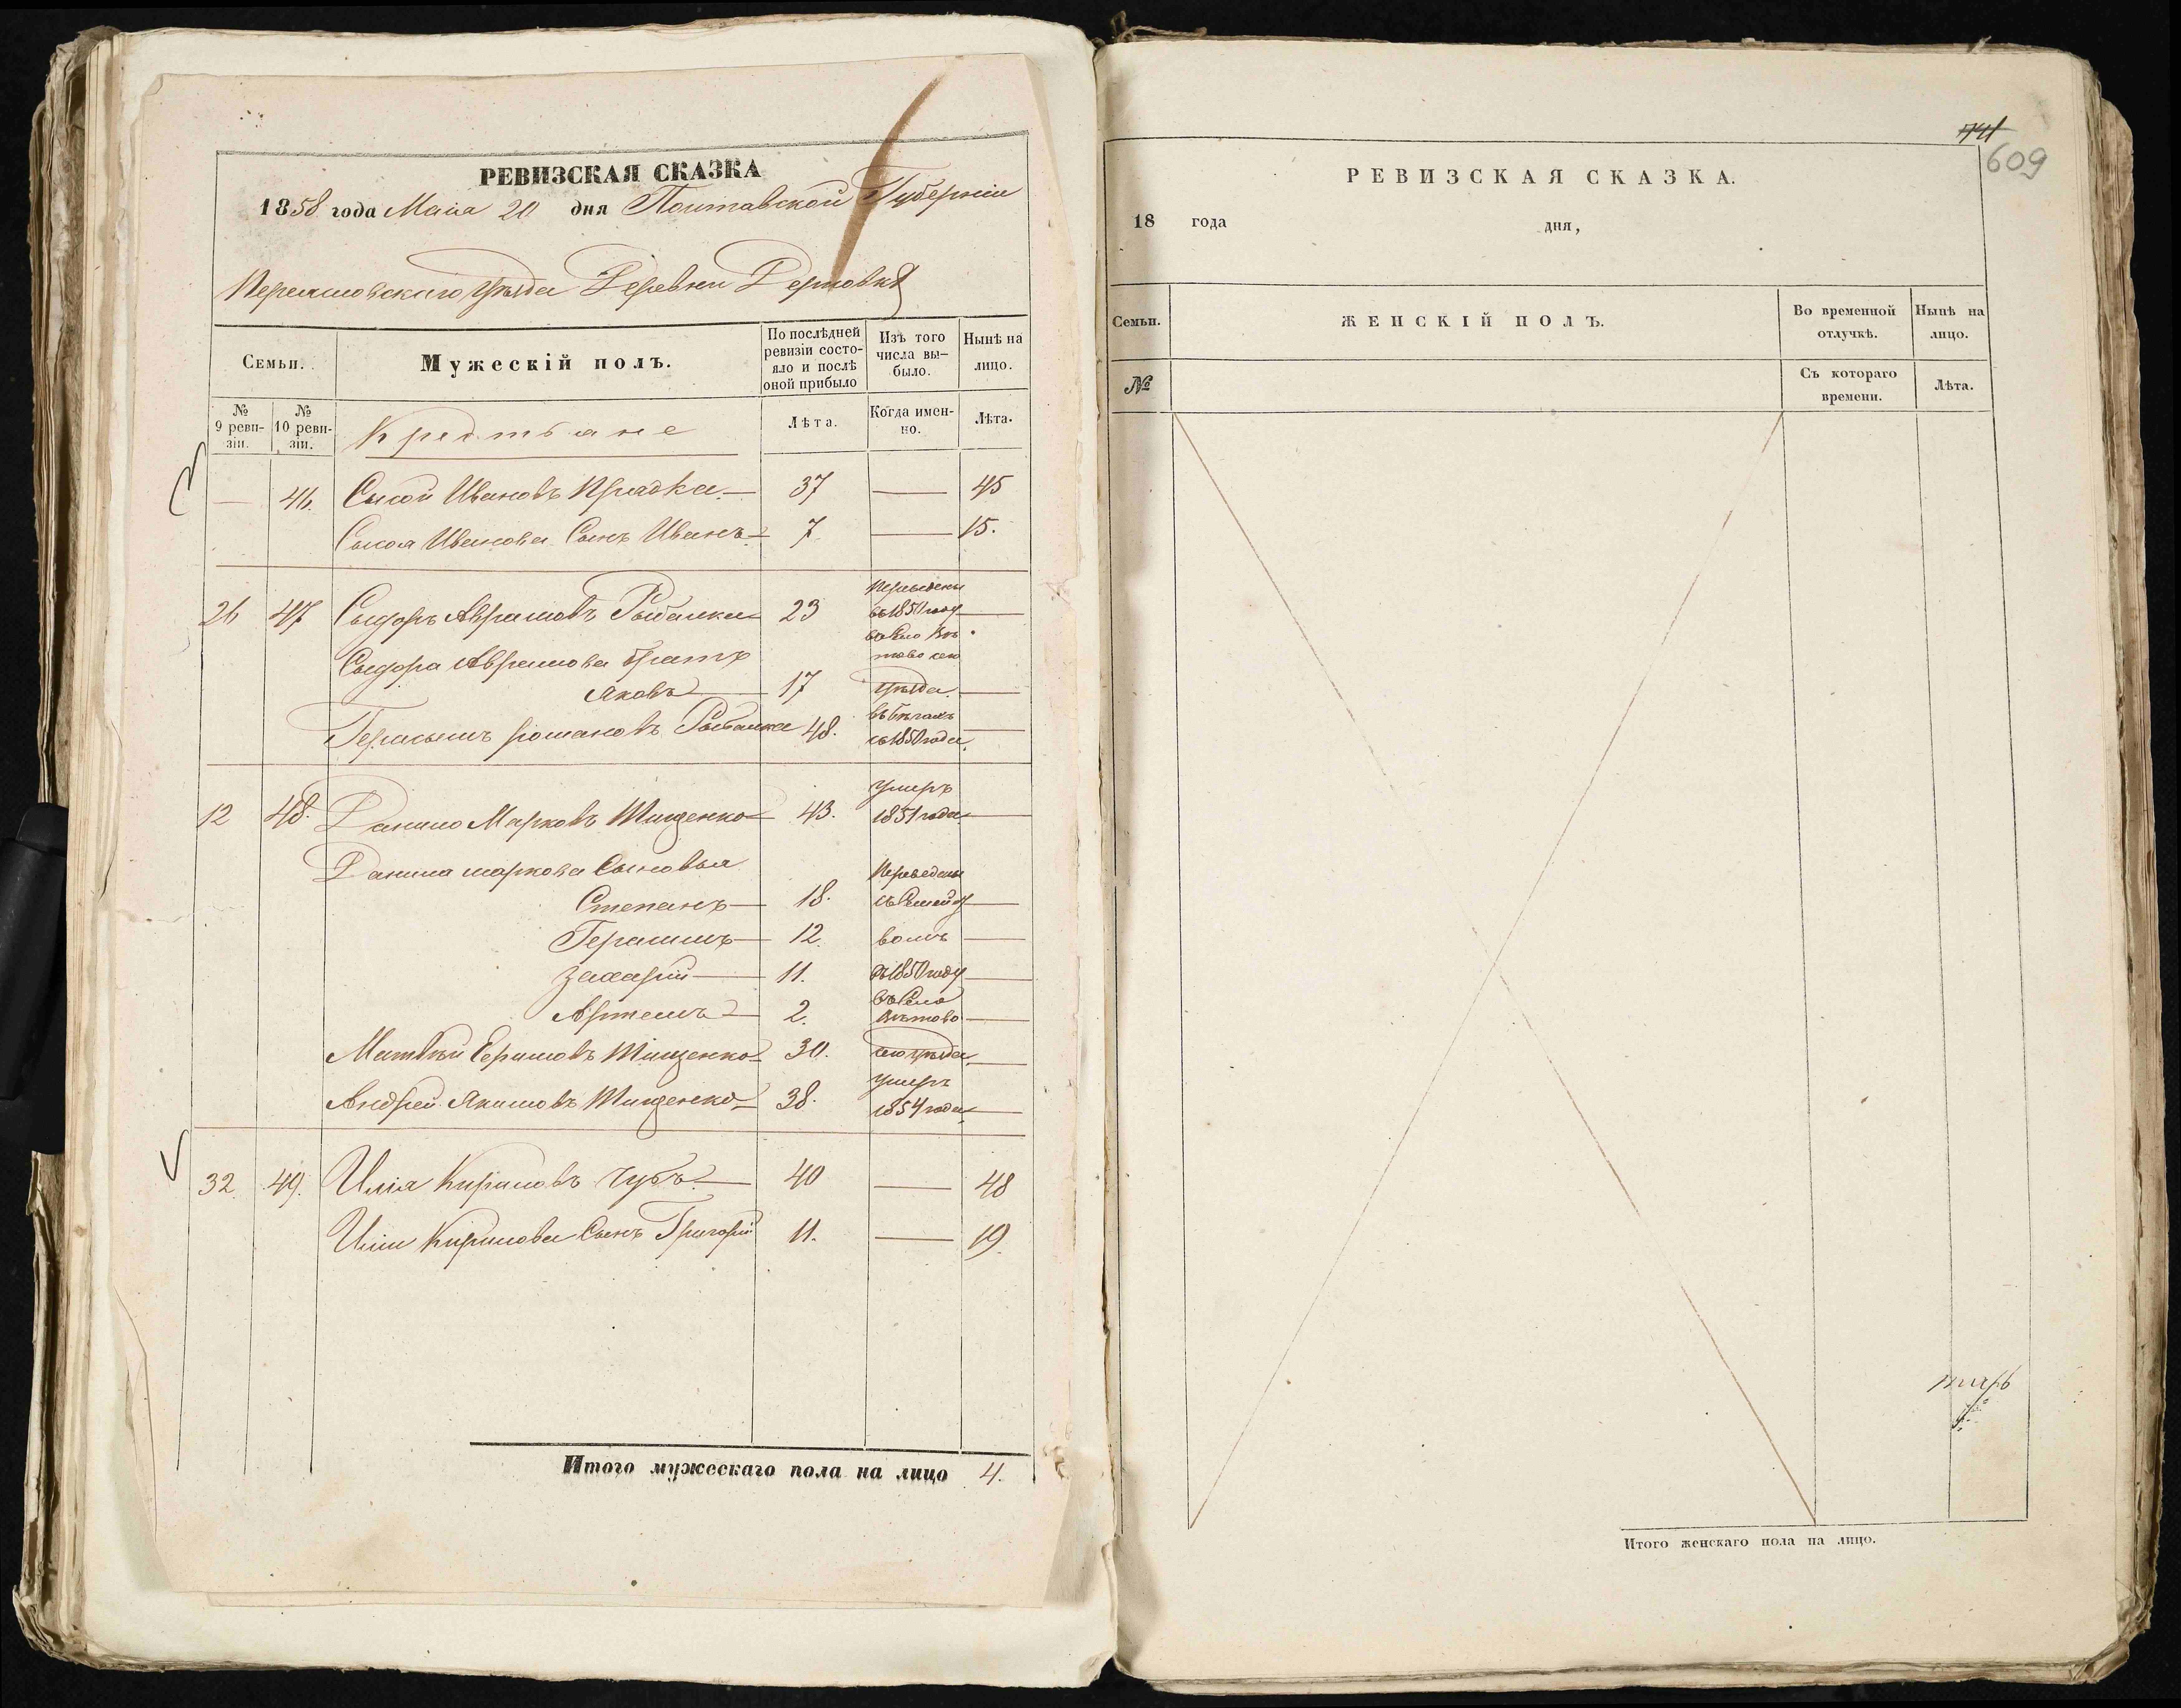 РЕВИЗСКАЯ СКАЗКА
1858 года Маия 20 дня Полтавской Губернии
Переяславскаго уѣзда Деревни
Семьи.
Мужескій полъ.
По послѣдней ревизіи состояло и послѣ оной прибыло
Изъ того числа выбыло.
Нынѣ на лицо.
№ 9 ревизіи.
№ 10 ревизіи.
Крестьяне
Лѣта.
Когда именно.
Лѣта.
— 46. Сысой Ивановъ — 37 — 45
Сысоя Иванова Сынъ Иванъ — 7 — 15.
26 47 Сыдоръ Аврамовъ Рыбалка 23
Сыдора Аврамова братъ
Яковъ 17
въ 1850 году
уѣзда.
Герасымъ романовъ Рыбалка 48.
въ бѣгахъ
съ 1850 года.
12 48. Данило Марковъ Тищенко 43.
умеръ
1851 года
Данила маркова Сыновья
Степанъ — 18.
Герасимъ — 12.
Захарій — 11.
Артемъ — 2.
Матвѣй Тищенко 30.
Переведены
съ Семей
вомъ
въ 1850 году
въ Село
сего уѣзда
Андрей Якимовъ Тищенко 38.
умеръ
1854 года
32. 49. Илія Кириловъ Чубъ — 40 — 48
Иліи Кирилова Сынъ Григорій 11. — 19.
Итого мужескаго пола на лицо 4.
741
609
РЕВИЗСКАЯ СКАЗКА.
18 года дня,
Семьи.
ЖЕНСКІЙ ПОЛЪ.
Во временной отлучкѣ.
Нынѣ на лицо.
№
Съ котораго времени.
Лѣта.
Итого женскаго пола на лицо.